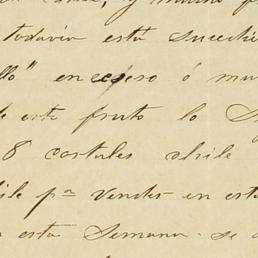 todavia está
llo" en espero ó mu
de este fruto lo
8 costales chile
ile pa vender en est
esta Semana. se